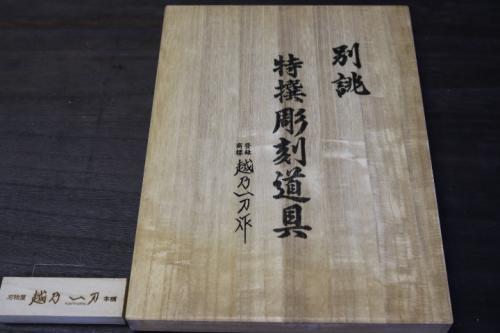 別誂
特撰彫刻道具
登録
商標
越乃一刀作
刃物屋 越乃一刀 本舗